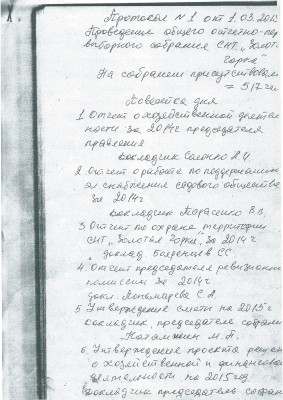 Протокол №1 от 1.03.2015
Проведение общего отчетно-пер
выборного собрания СНТ „Золот
Горка"
На собрании присутствовали
= 517 че
Повестка дня
1. Отчет о хозяйственной деятель
ности за 2014г председателя
правления
докладчик
2. Отчет о работе по поддержанию
эл снабжения садового общества
за 2014г
докладчик Тарасенко В.В.
3. Отчет по охране территории
СНТ „Золотая Горка" за 2014г
доклад СС
4. Отчет председателя ревизионной
комиссии за 2014г
докл. Пономарева С.А.
5 Утверждение сметы на 2015г
докладчик, председатель собрания
М.П.
6. Утверждение проекта решен
о хозяйственной и финансовой
деятельности на 2015год
докладчик председатель собран